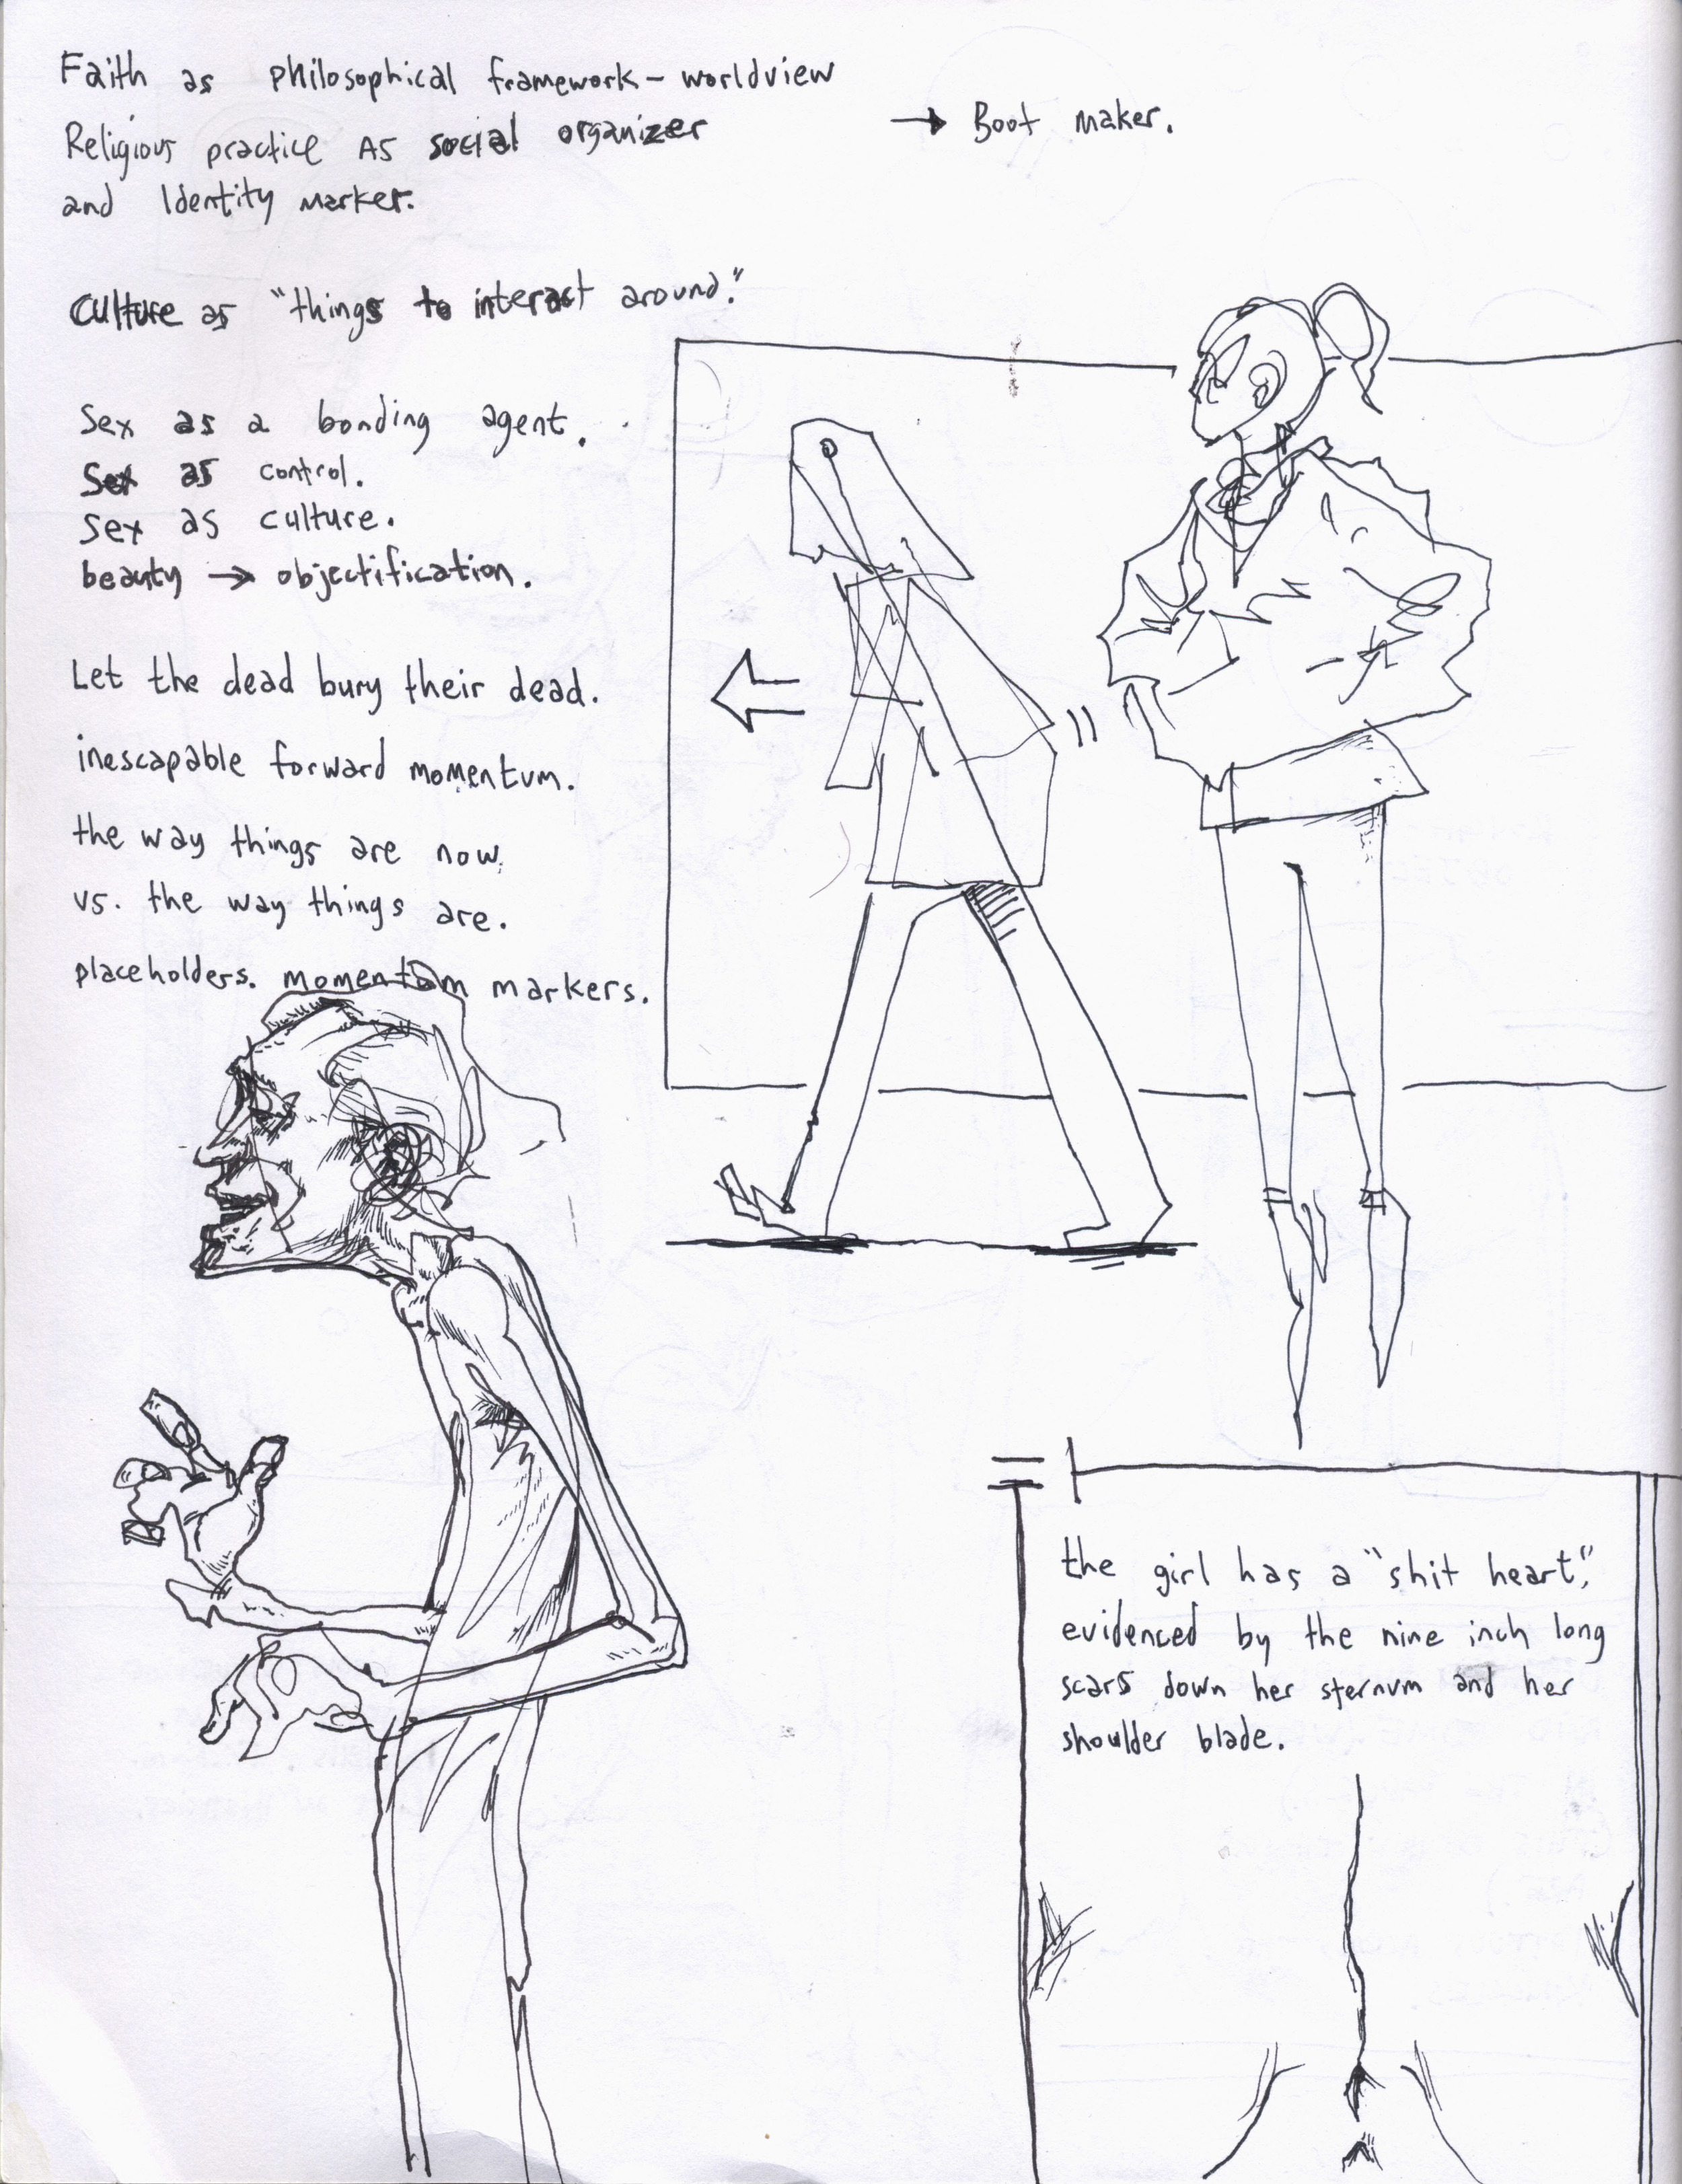 Faith as philosophical framework - worldview
Religious practice AS social organizer
and Identity marker.
→ Boot maker.
Culture as "things to interact around."
Sex as a bonding agent.
Sex as control.
Sex as culture.
beauty → objectification.
Let the dead bury their dead.
inescapable forward momentum.
the way things are now
vs. the way things are.
placeholders. momentum markers.
the girl has a "shit heart,"
evidenced by the nine inch long
scars down her sternum and her
shoulder blade.